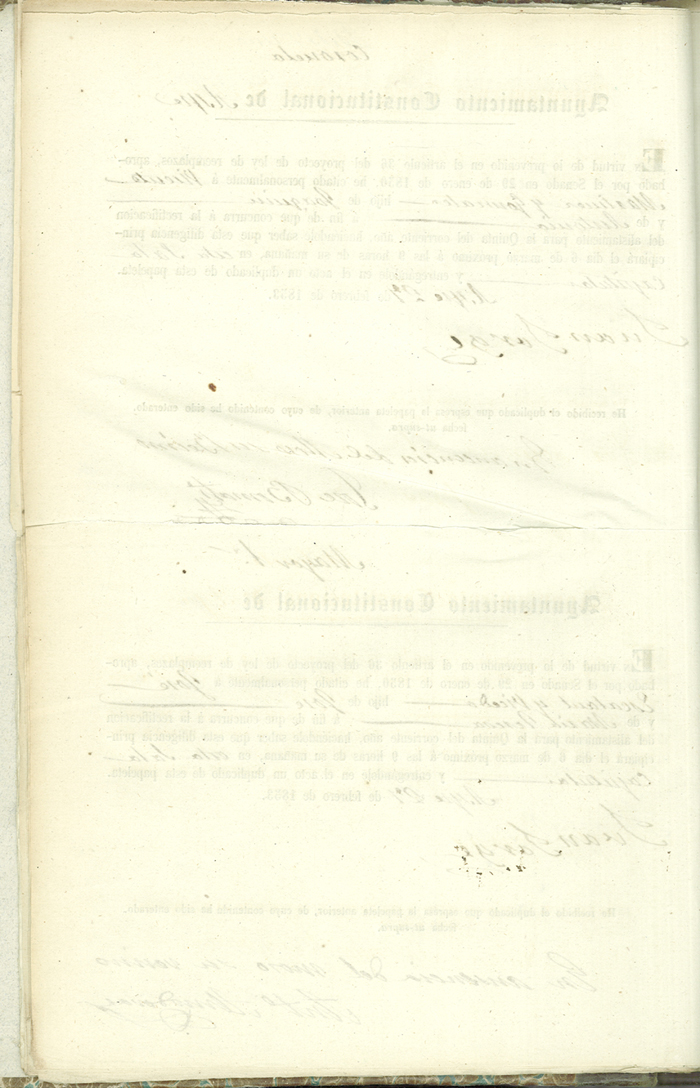 Coronela
Ayuntamiento Constitucional de Aspe
En virtud de lo prevenido en el artículo 39 del proyecto de ley de reemplazos, apro-
bado por el Senado en 29 de enero de 1850, he citado personalmente á Vicente
Martinez y Gonzalez hijo de
y de Antonia á fin de que concurra á la rectificacion
del alistamiento para la Quinta del corriente año, haciendole saber que esta diligencia prin-
cipiará el dia 6 de marzo próximo á las 9 horas de su mañana, en esta Sala
Capitular y entregándole en el acto un duplicado de esta papeleta.
Aspe 27 de febrero de 1853.
Juan
He recibido el duplicado que espresa la papeleta anterior, de cuyo contenido he sido enterado.
fecha ut-supra.
En ausencia del Mozo su
Jose
Mayor 1.
Ayuntamiento Constitucional de
En virtud de lo prevenido en el artículo 39 del proyecto de ley de reemplazos, apro-
bado por el Senado en 29 de enero de 1850, he citado personalmente á José
y hijo de Jose
y de á fin de que concurra á la rectificacion
del alistamiento para la Quinta del corriente año, haciendole saber que esta diligencia prin-
cipiará el dia 6 de marzo próximo á las 9 horas de su mañana, en esta Sala
Capitular y entregándole en el acto un duplicado de esta papeleta.
Aspe 27 de febrero de 1853.
Juan
He recibido el duplicado que espresa la papeleta anterior, de cuyo contenido he sido enterado.
fecha ut-supra.
En ausencia del mozo su vecino